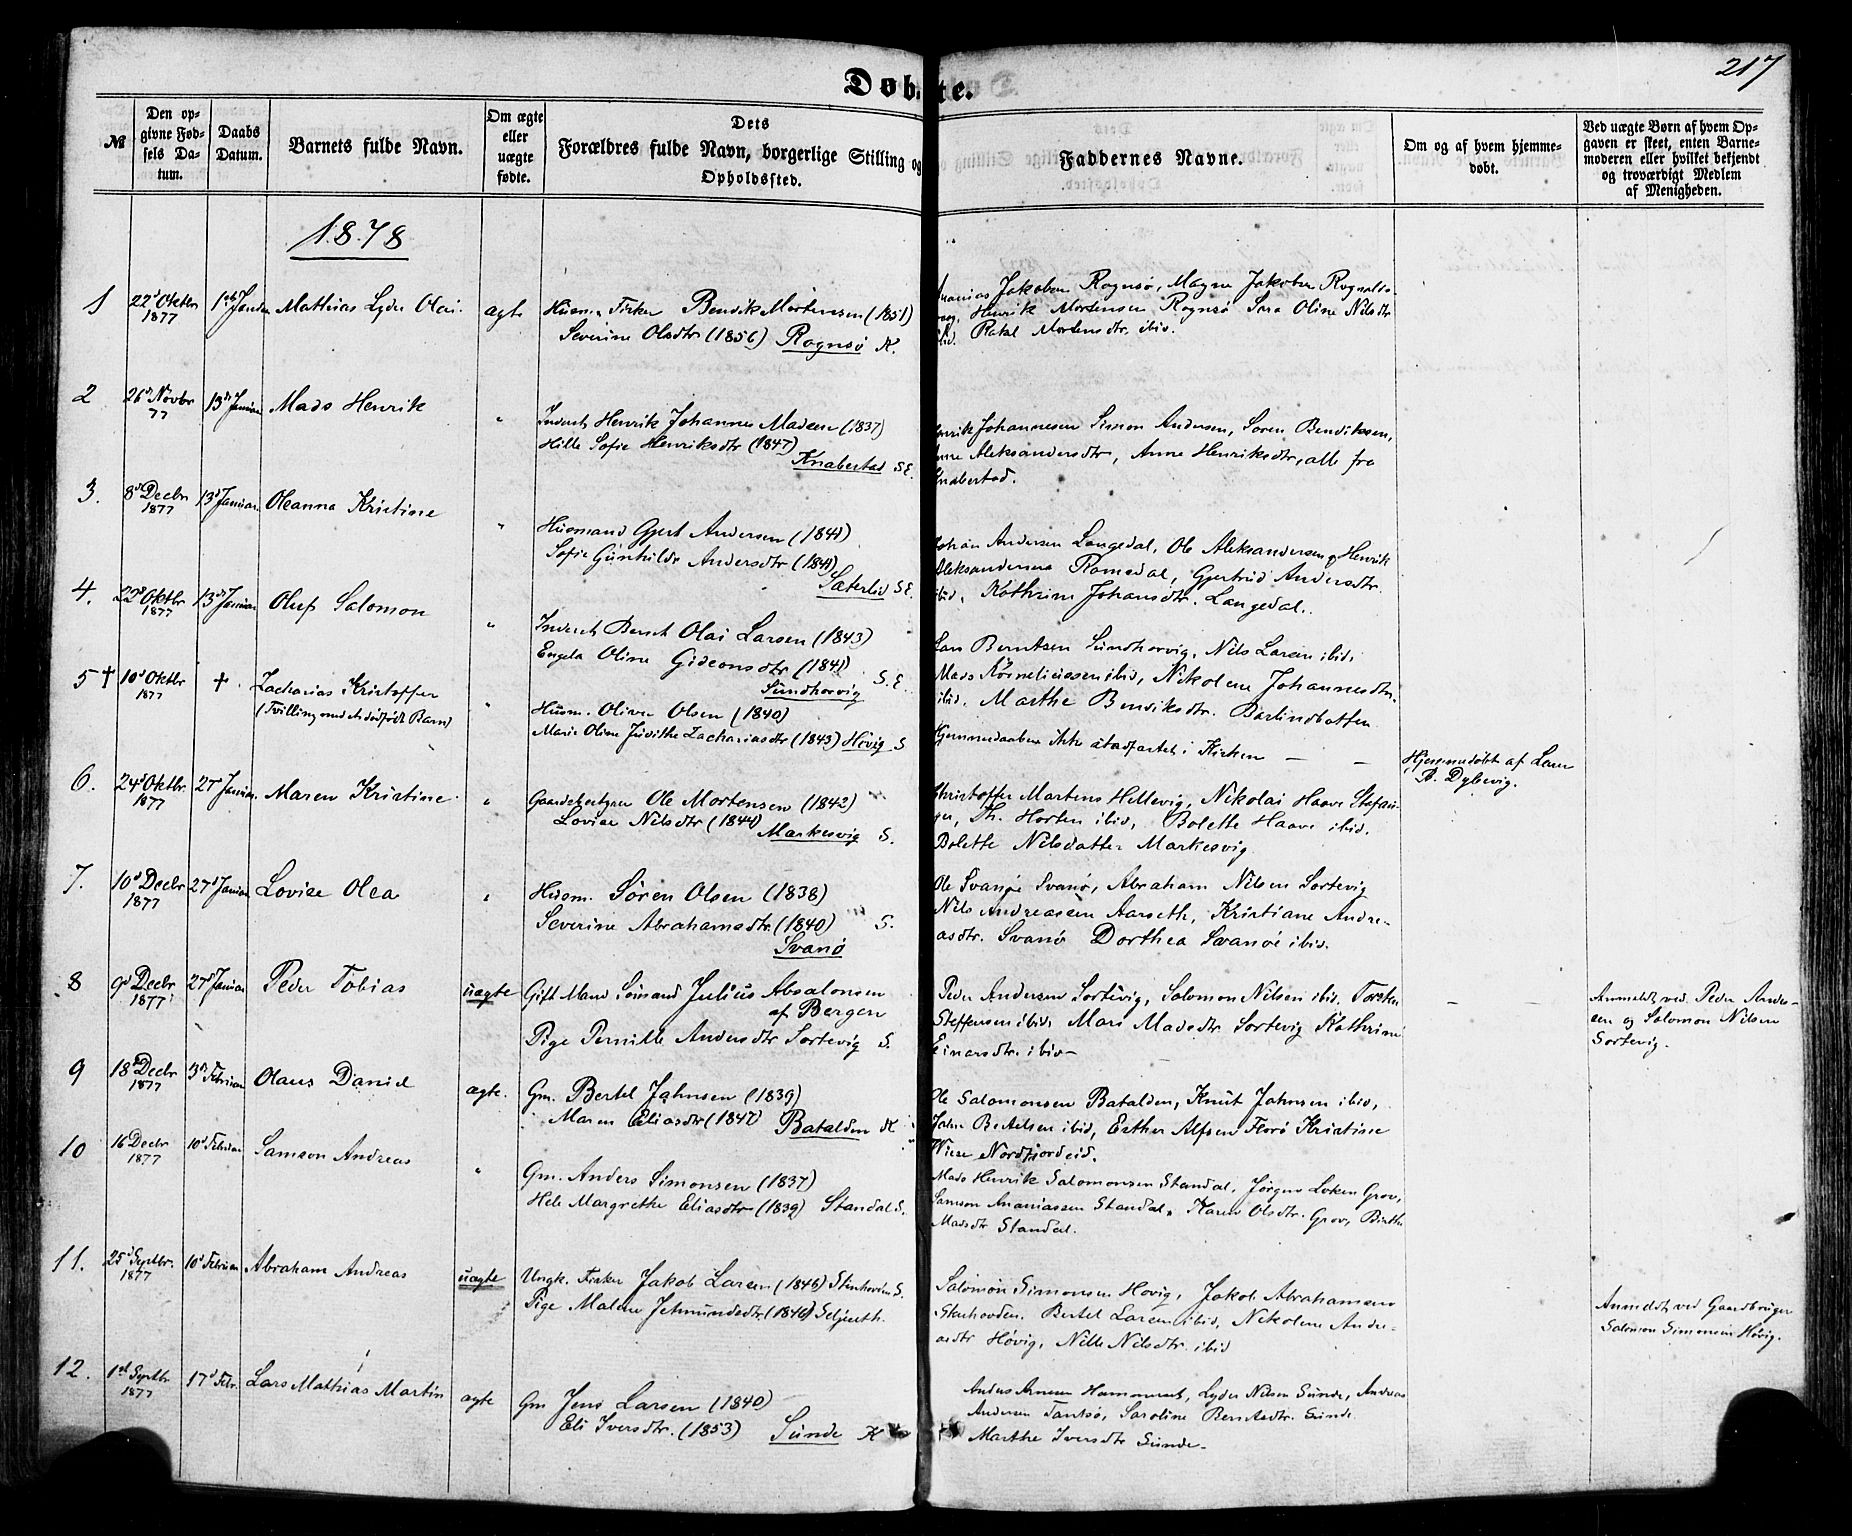 217
Døbte.
№
Den opgivne Fødsels Datum.
Daabs Datum.
Barnets fulde Navn.
Om ægte eller uægte fødte.
Dets
Forældres fulde Navn, borgerlige Stilling og
Opholdssted.
Faddernes Navne.
Om og af hvem hjemmedøbt.
Ved uægte Børn af hvem Opgaven er skeet, enten Barnemoderen eller hvilket bekjendt og troværdigt Medlem af Menigheden.
1878
1 22d Oktbr 1877 Mathias Lyder Olai. ægte
Husm. Fisker Bendik Mortensen (1851)
Severine Olsdtr (1856) Rognsö K.
Ananias Jakobsen Rognsö, Magne Jakobsen
Henrik Mortensen Rognsö Sara Oline Nilsdtr
ibid. Rakel Mortensdtr. ibid.
2 26d Novbr 77 13d Januar Mads Henrik "
Inderst Henrik Johannes Madsen (1837)
Hille Sofie Henriksdtr (1847)
Knabestad S.E.
Johannesen Simon Andersen, Søren Bendiksen,
Aleksandersdtr, Anne Henriksdtr, alle fra
Knabestad.
3. 8d Decbr 1877 13d Januar. Oleanna Kristine "
Husmand Gjert Andersen (1841)
Sofie Gunhilde Andersdtr (1841)
Sæterlid S.E.
Johan Andersen Langedal, Ole Aleksandersen, Henrik
Aleksandersen Ramsdal, Gjertrud Andersdtr.
ibid, Kathrine Johansdtr. Langedal.
4. 22d Oktbr 1877 13d Januar Oluf Salomon "
Inderst Bernt Olai Larsen (1843)
Engela Oline Gideonsdtr (1841) S.E.
Sundhorvig
Lars Berntsen Sundhorvig, Nils Larsen ibid,
Mads Korneliussen ibid, Nikoline Johannesdtr.
ibid. Marthe Bendiksdtr. Barlindbotten
5 † 10d Oktbr 1877 † Zacharias Kristoffer "
(Tvilling med et dødfødt Barn)
Husm. Oliver Olsen (1840)
Marie Oline Judithe Zachariasdtr (1843) Høvig S
Hjemmedaaben ikke stadfæstet i Kirken — —
Hjemmedøbt af Lars
R. Dybevig.
6. 24d Oktbr. 1877 27d Januar. Maren Kristine "
Gaardsbestyrer Ole Mortensen (1842)
Lovise Nilsdtr (1844) Markesvig S.
Christoffer Martens Hellevig, Nikolai Haave
Th. Horten ibid, Bolette Haave ibid.
Bolette Nilsdatter Markesvig
7. 10d Decbr 1877 27d Januar Lovise Olea "
Husm. Sören Olsen (1838)
Severine Abrahamsdtr. (1840) S.
Svanö
Ole Svanøe Svanö, Abraham Nilsen Sortevig
Nils Andreassen Aarseth, Kristiane Andre-
asdtr. Svanö Dorthea Svanöe ibid.
8 9d Decbr 1877 27d Januar Peder Tobias uægte
Gift Mand Sömand Julius Absalonsen
af Bergen
Pige Pernille Andersdtr Sortevig S.
Peder Andersen Sortevig, Salomon Nilsen ibid. Torsten
Steffensen ibid, Mari Madsdtr Sortevig Kathrine
Einarsdtr. ibid —
— —
Anmeldt ved Peder Ander-
sen og Salomon Nilsen
Sortevig.
9 18d Decbr 1877 3d Februar Olaus Daniel ægte.
Gm. Bertel Jahnsen (1839)
Maren Eliasdtr (1847) Batalden K
Ole Salomonsen Batalden, Knut Jahnsen ibid,
Jahn Bertelsen ibid, Esther Alfsen Florö Kristine
Wiese Nordfjordeid.
10 16 Decbr 1877 10d Februar Samson Andreas "
Gm. Anders Simonsen (1837)
Hele Margrethe Eliasdtr (1839) Standal S.
Mads Henrik Salomonsen Standal, Jørgen Loken Grov,
Samson Ananiassen Standal, Karen Olsdtr. Grov, Birthe
Madsdtr Standal.
11. 25d Septbr. 1877 10d Februar Abraham Andreas uægte
Ungk. Fisker Jakob Larsen (1846) S.
Pige Malene Jetmundsdtr. (1846)
Salomon Simonsen Høvig, Jakob Abrahamsen
Bertel Larsen ibid, Nikoline Andre-
asdtr Høvig, Nille Nilsdtr. ibid
Anmeldt ved Gaardbruger
Salomon Simonsen Høvig.
12. 1st Septbr 1877 17d Febr. Lars Mathias Martin ægte
Gm Jens Larsen (1840)
Eli Iversdtr. (1853) Sunde K
Lyder Nilsen Sunde, Andreas
Andersen Tansö, Saroline Berntsdtr. Sunde
Marthe Iversdtr Sunde.